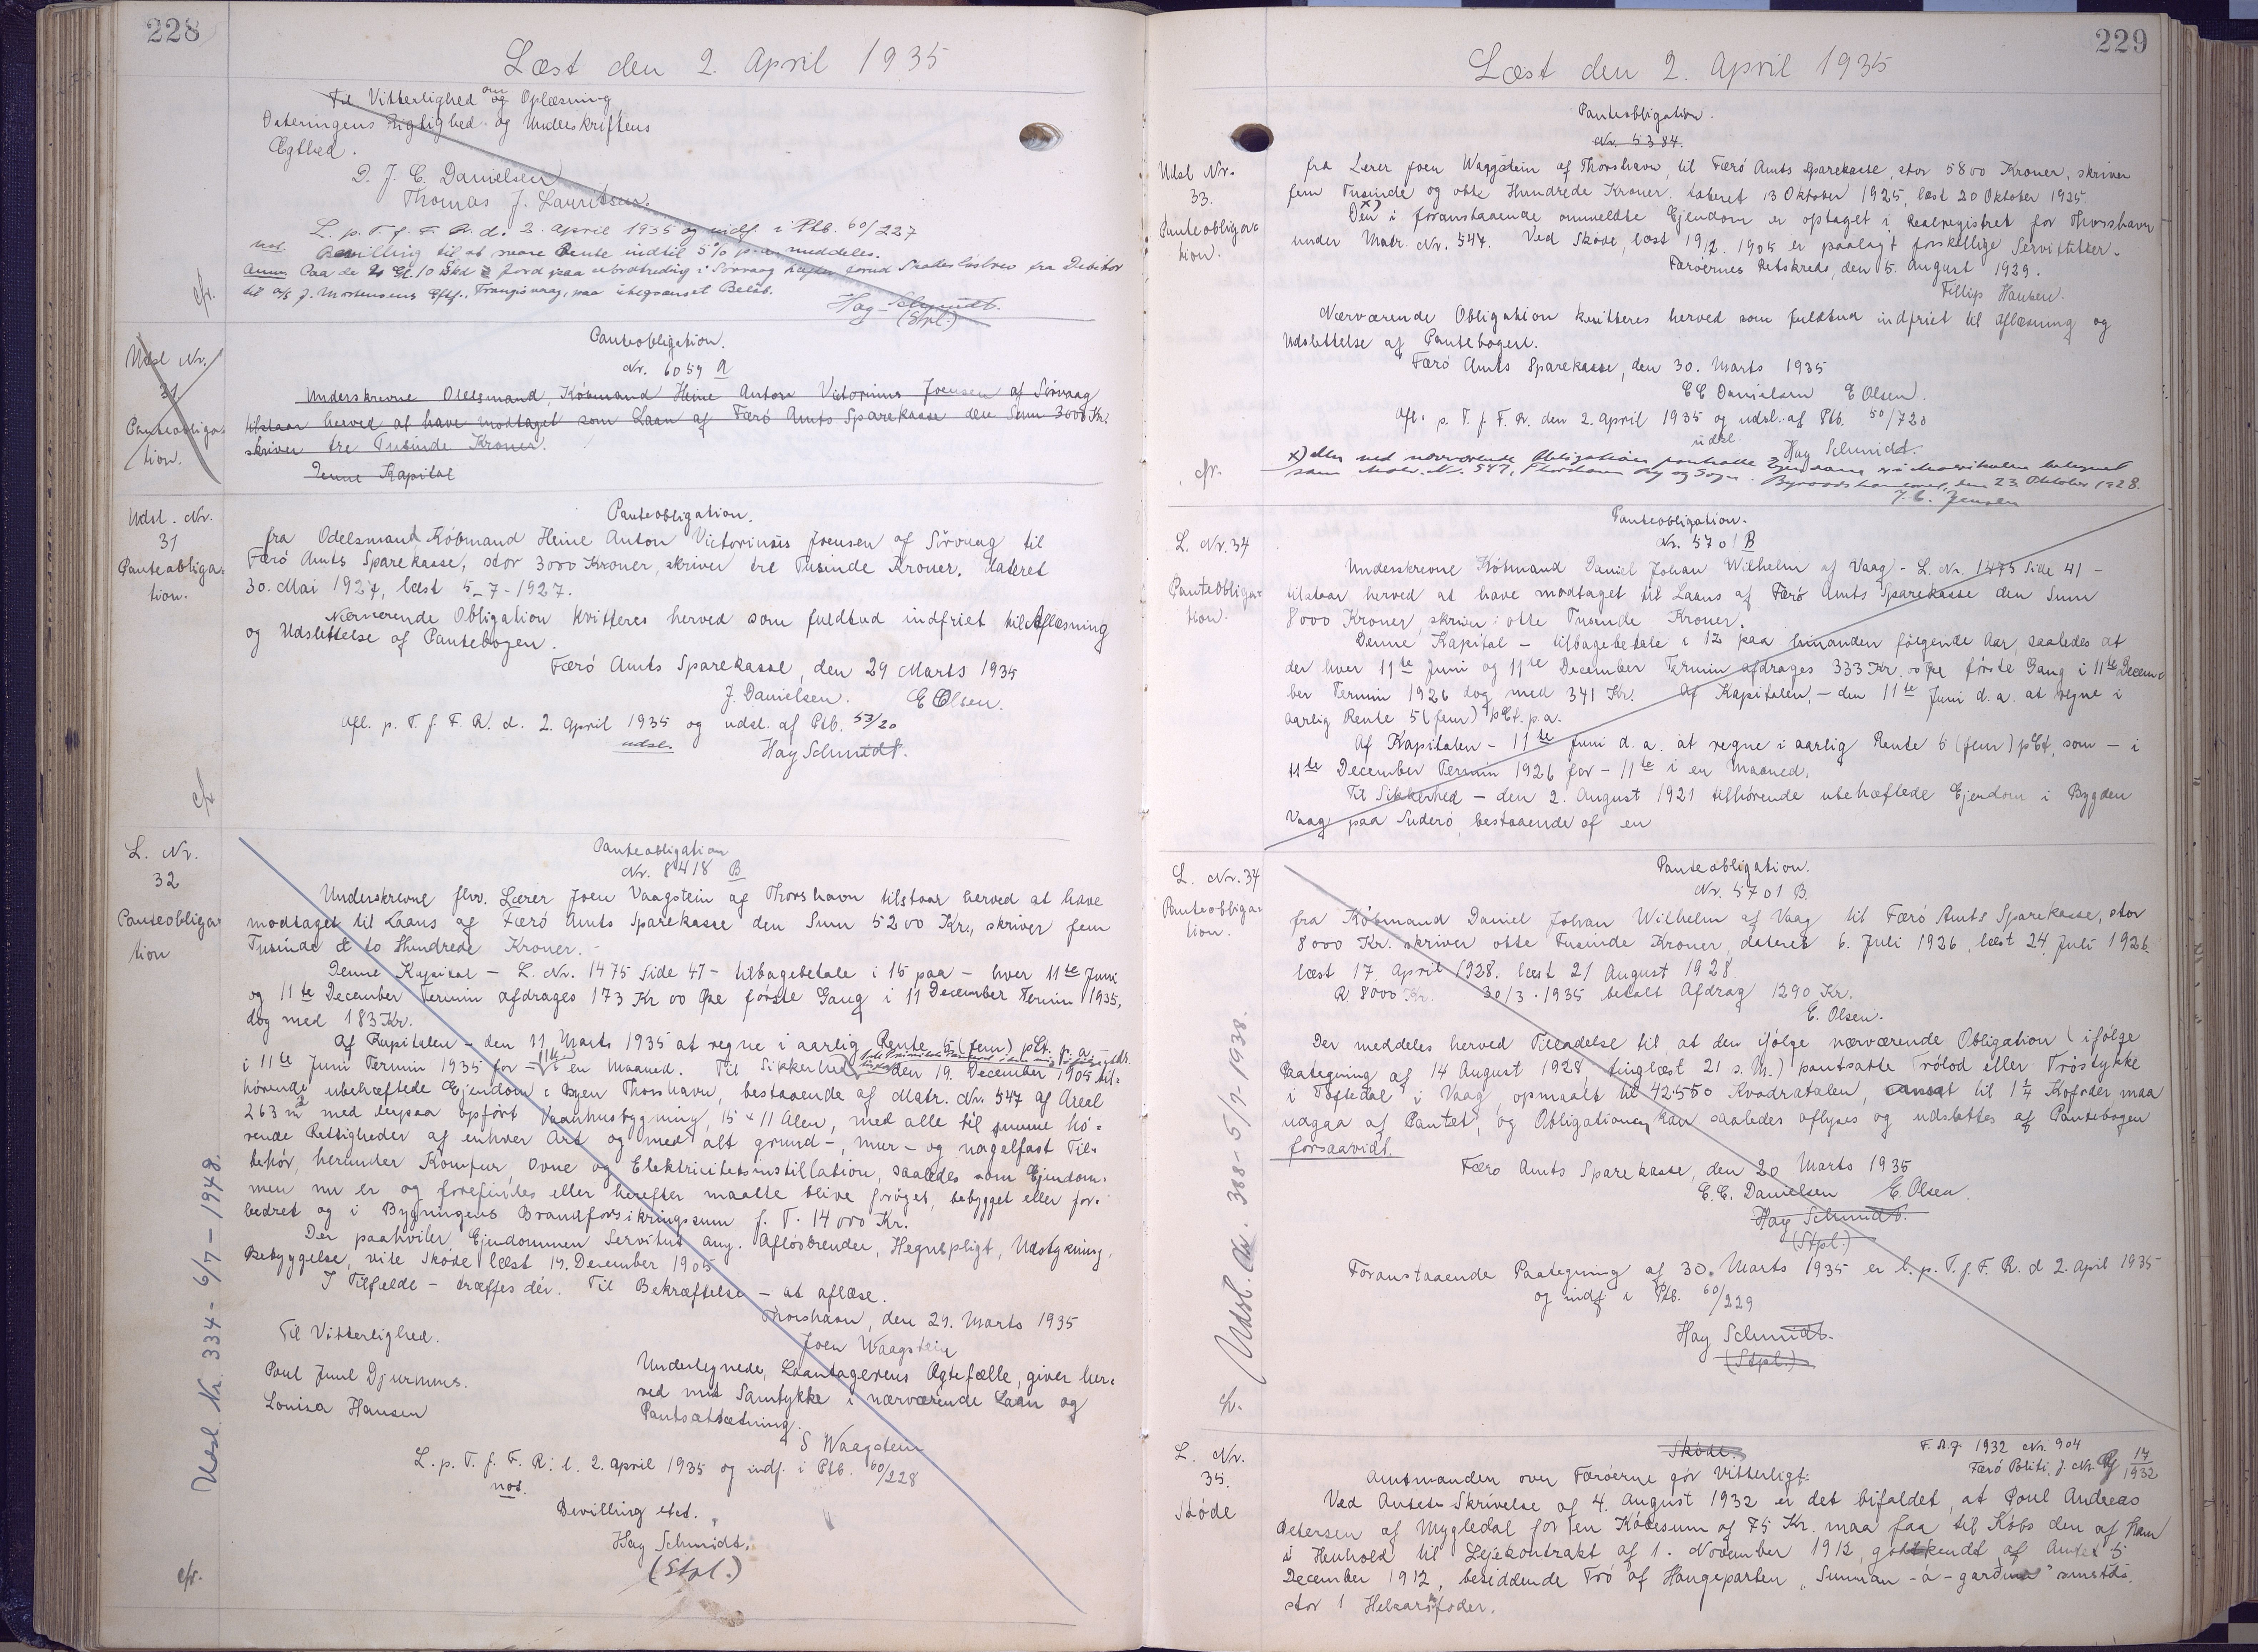 228
Læst den 2. April 1935
Til Vitterlighed om og Oplæsning
Dateringens Rigtighed og Underskriftens
Ægthed.
D. J. C. Danielsen
Thomas J. Lauritsen.
L. p. T. f. F. R. d. 2. April 1935 og indf. i Ptb. 60/227
not.
Bevilling til at svare Rente indtil 5% p. a. meddeles.
Anm. Paa de
til A/S J. Mortensens Eftf., Trangisvaag, paa ubegrænset Beløb.
Hay-Schmidt.
(Stpl.)
cfr.
Udsl Nr.
31
Panteobliga-
tion.
Panteobligation.
Nr. 6059 A
Underskrevne Odelsmand, Købmand Heine Anton Victorinus Joensen af Sörvaag
tilstaar herved at have modtaget som Laan af Færö Amts Sparekasse den Sum 3000 Kr.
skriver tre Tusinde Kroner.
Denne Kapital
Udsl. Nr.
31
Panteobliga-
tion.
Panteobligation.
fra Odelsmand Købmand Heine Anton Victorinus Joensen af Sörvaag til
Færö Amts Sparekasse, stor 3000 Kroner, skriver tre Tusinde Kroner. dateret
30. Mai 1927, læst 5-7-1927.
Nærværende Obligation kvitteres herved som fuldtud indfriet til Aflæsning
og Udslettelse af Pantebogen.
Færö Amts Sparekasse, den 29 Marts 1935
J. Danielsen. E Olsen.
Afl. p. T. f. F. R. d. 2. April 1935 og udsl. af Ptb. 53/20
udsl.
Hay Schmidt.
cfr
L. Nr.
32
Panteobliga-
tion
Panteobligation
Nr. 8418 B
Underskrevne fhv. Lærer Joen Vaagstein af Thorshavn tilstaar herved at have
modtaget til Laans af Færö Amts Sparekasse den Sum 5200 Kr., skriver fem
Tusinde & to Hundrede Kroner.
Denne Kapital - L. Nr. 1475 Side 47 - tilbagebetale i 15 paa - hver 11te Juni
og 11te December Termin afdrages 173 Kr 00 Øre förste Gang i 11 December Termin 1935,
dog med 183 Kr.
Af Kapitalen - den 11 Marts 1935 at regne i aarlig Rente 5 (fem) pCt. p. a.
i 11te Juni Termin 1935 for - 11te i en Maaned. Til Sikkerhed den 19. December 1905 til-
hørende ubehæftede Ejendom i Byen Thorshavn, bestaaende af Matr. Nr. 547 af Areal
263 m2 med derpaa opfört Vaanhusbygning, 15 x 11 Alen, med alle til samme hö-
rende Rettigheder af enhver Art og med alt grund-, mur- og nagelfast Til-
behör, herunder Komfur, Ovne og Elektricitetsinstillation, saaledes som Ejendom-
men nu er og forefindes eller herefter maatte blive forøget, bebygget eller for-
bedret og i Bygningens Brandforsikringssum f. T. 14000 Kr.
Der paahviler Ejendommen Servitut ang. Aflösbrender, Hegnspligt, Udstykning,
Bebyggelse, vide Sköde læst 19. December 1905
I Tilfælde - træffes dér. Til Bekræftelse - at aflæse.
Thorshavn, den 29. Marts 1935
Joen Waagstein
Til Vitterlighed.
Poul Juul Djurhuus.
Louisa Hansen
Undertegnede, Laantagerens Ægtefælle, giver her-
ved mit Samtykke i nærværende Laan og
Pantsætning.
S Waagstein
L. p. T. f. F. R. d. 2. April 1935 og indf. i Ptb. 60/228
not.
Bevilling etct.
Hay Schmidt.
(Stpl.)
cfr.
Udsl. Nr. 334 - 6/7 - 1948.
229
Læst den 2. April 1935
Udsl Nr.
33.
Panteobliga-
tion.
Panteobligation.
Nr. 5384.
fra Lærer Joen Waagstein af Thorshavn, til Færö Amts Sparekasse, stor 5800 Kroner, skriver
fem Tusinde og otte Hundrede Kroner. dateret 13 Oktober 1925, læst 20 Oktober 1925.
Den x) i foranstaaende ommeldte Ejendom er optaget i Realregistret for Thorshavn
under Matr. Nr. 547. Ved Sköde, læst 19/12. 1905 er paalagt forskellige Servitutter.
Færöernes Retskreds, den 5. August 1929.
Fillip Hansen.
Nærværende Obligation kvitteres herved som fuldtud indfriet til Aflæsning og
Udslettelse af Pantebogen.
Færö Amts Sparekasse, den 30. Marts 1935
E E Danielsen E Olsen.
Afl. p. T. f. F. R. den 2. April 1935 og udsl. af Ptb. 50/720
udsl.
Hay Schmidt.
x) den ved nærværende Obligation pantsatte Ejendom er i Matrikulen betegnet
som Matr. Nr. 547, Thorshavn By og Sogn. Byraadskontoret, den 23 Oktober 1928.
J. C. Jensen
cfr.
L. Nr. 34
Panteobliga-
tion.
Panteobligation.
Nr. 5701 B
Underskrevne Købmand Daniel Johan Wilhelm af Vaag - L. Nr. 1475 Side 41 -
tilstaar herved at have modtaget til Laans af Færö Amts Sparekasse den Sum
8000 Kroner, skriver: otte Tusinde Kroner.
Denne Kapital - tilbagebetale i 12 paa hinanden følgende Aar, saaledes at
der hver 11te Juni og 11te December Termin afdrages 333 Kr. 00 Øre förste Gang i 11te Decem-
ber Termin 1926 dog med 341 Kr. Af Kapitalen, - den 11te Juni d. a. at regne i
aarlig Rente 5 (fem) pCt. p. a.
Af Kapitalen - 11te Juni d. a. at regne i aarlig Rente 5 (fem) pCt, som - i
11te December Termin 1926 for - 11te i en Maaned.
Til Sikkerhed - den 2. August 1921 tilhörende ubehæftede Ejendom i Bygden
Vaag paa Suderö, bestaaende af en
L. Nr. 34
Panteobliga-
tion.
Panteobligation.
Nr. 5701 B.
fra Købmand Daniel Johan Wilhelm af Vaag til Færö Amts Sparekasse, stor
8000 Kr. skriver otte Tusinde Kroner, dateret 6. Juli 1926, læst 24 Juli 1926.
læst 17. April 1928. læst 21 August 1928.
R. 8000 Kr. 30/3 . 1935 betalt Afdrag 1290 Kr.
E. Olsen.
Der meddeles herved Tilladelse til, at den ifølge nærværende Obligation (ifølge
Paategning af 14 August 1928, tinglæst 21 s. M.) pantsatte Trölod eller Tröstykke
i "Toftedal" i Vaag, opmaalt til 42550 Kvadratalen, ansat til 1 1/4 Kofoder, maa
udgaa af Pantet, og Obligationen kan saaledes aflyses og udslettes af Pantebogen
forsaavidt.
Færo Amts Sparekasse, den 20 Marts 1935
E. E. Danielsen E. Olsen.
Hay Schmidt.
(Stpl.)
Foranstaaende Paategning af 30. Marts 1935 er l. p. T. f. F. R. d 2. April 1935
og indf i Ptb. 60/229
Hay Schmidt.
(Stpl.)
Udsl. Nr. 388 - 5/7 - 1938.
cfr.
L. Nr.
35.
Sköde
Sköde.
F. A. J. 1932 Nr. 904
Færö Politi J. Nr. 17/1932
Amtmanden over Færöerne gör Vitterligt:
Ved Amtets Skrivelse af 4. August 1932 er det bifaldet, at Poul Andreas
Petersen af Mygledal for en Købesum af 75 Kr. maa faa til Købs den af ham
i Henhold til Lejekontrakt af 1. November 1912, godkendt af Amtet 5
December 1912, besiddende Trö af Haugeparten "Sunnan-á-garðinum" smstds.
stor 1 Helaarsfoder.